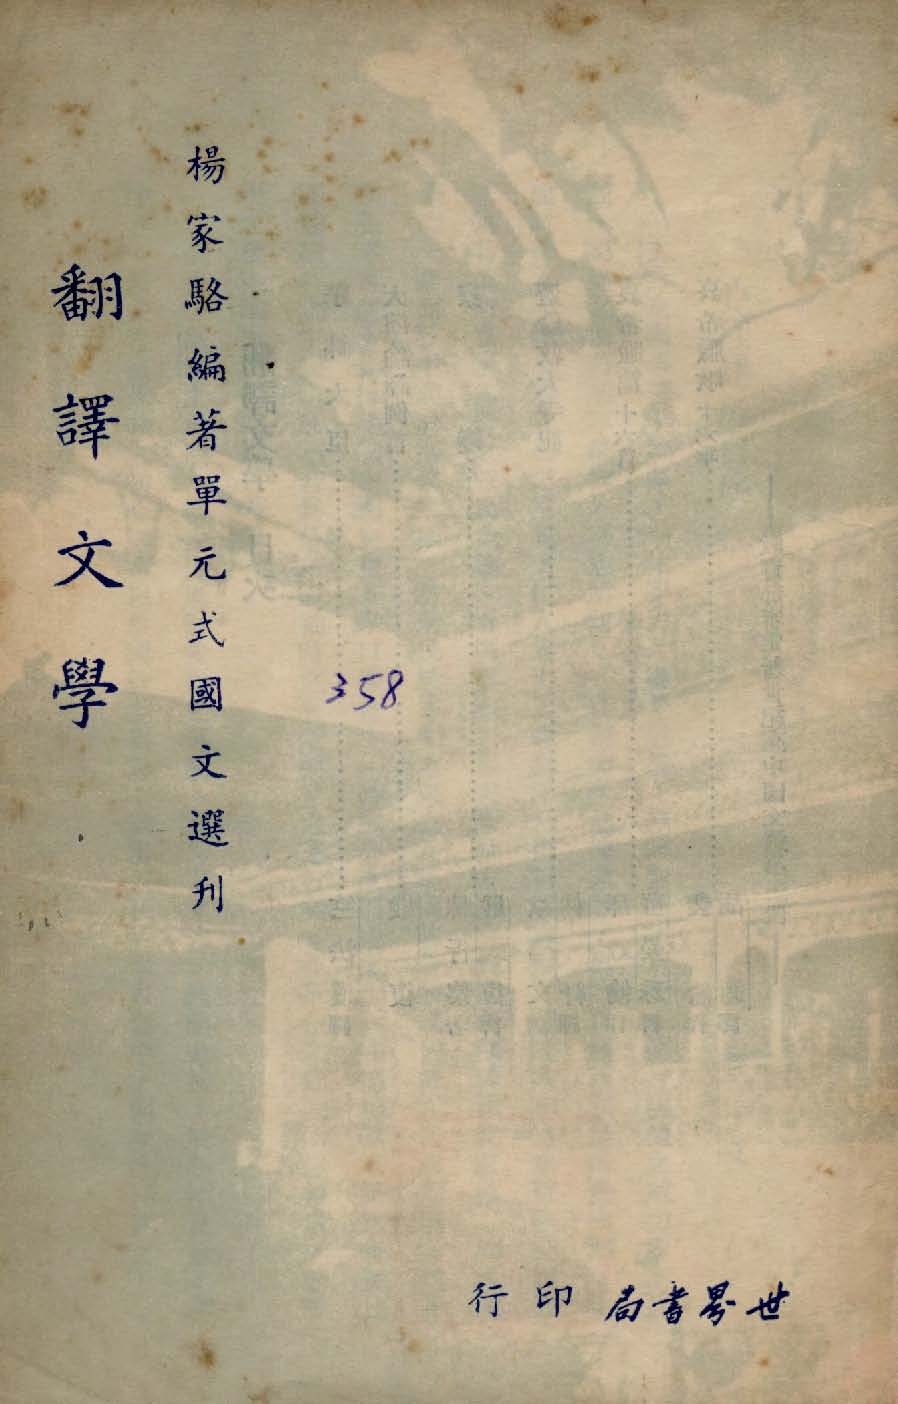 楊家駱編著單元式國文選刊
翻譯文學
358
世界書局印行